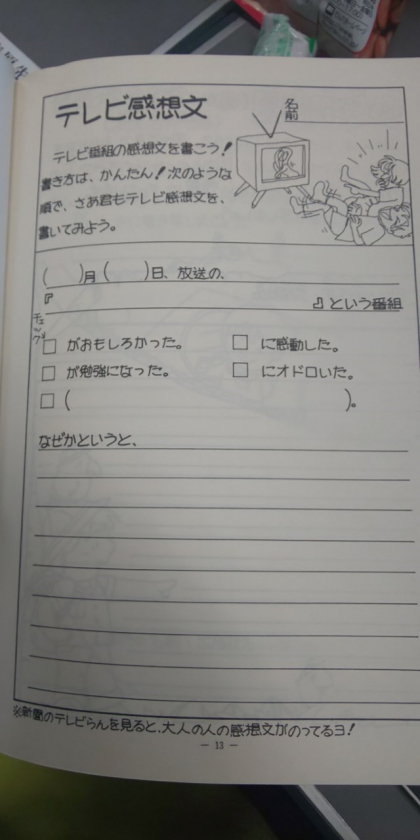 テレビ感想文
名前
テレビ番組の感想文を書こう!
書き方は、かんたん!次のような
順で、さあ君もテレビ感想文を、
書いてみよう。
( )月( )日、放送の、
『 』という番組
チェック
□ がおもしろかった。 □ に感動した。
□ が勉強になった。 □ にオドロいた。
□ ( )。
なぜかというと、
※新聞のテレビらんを見ると、大人の人の感想文がのってるヨ!
— 13 —